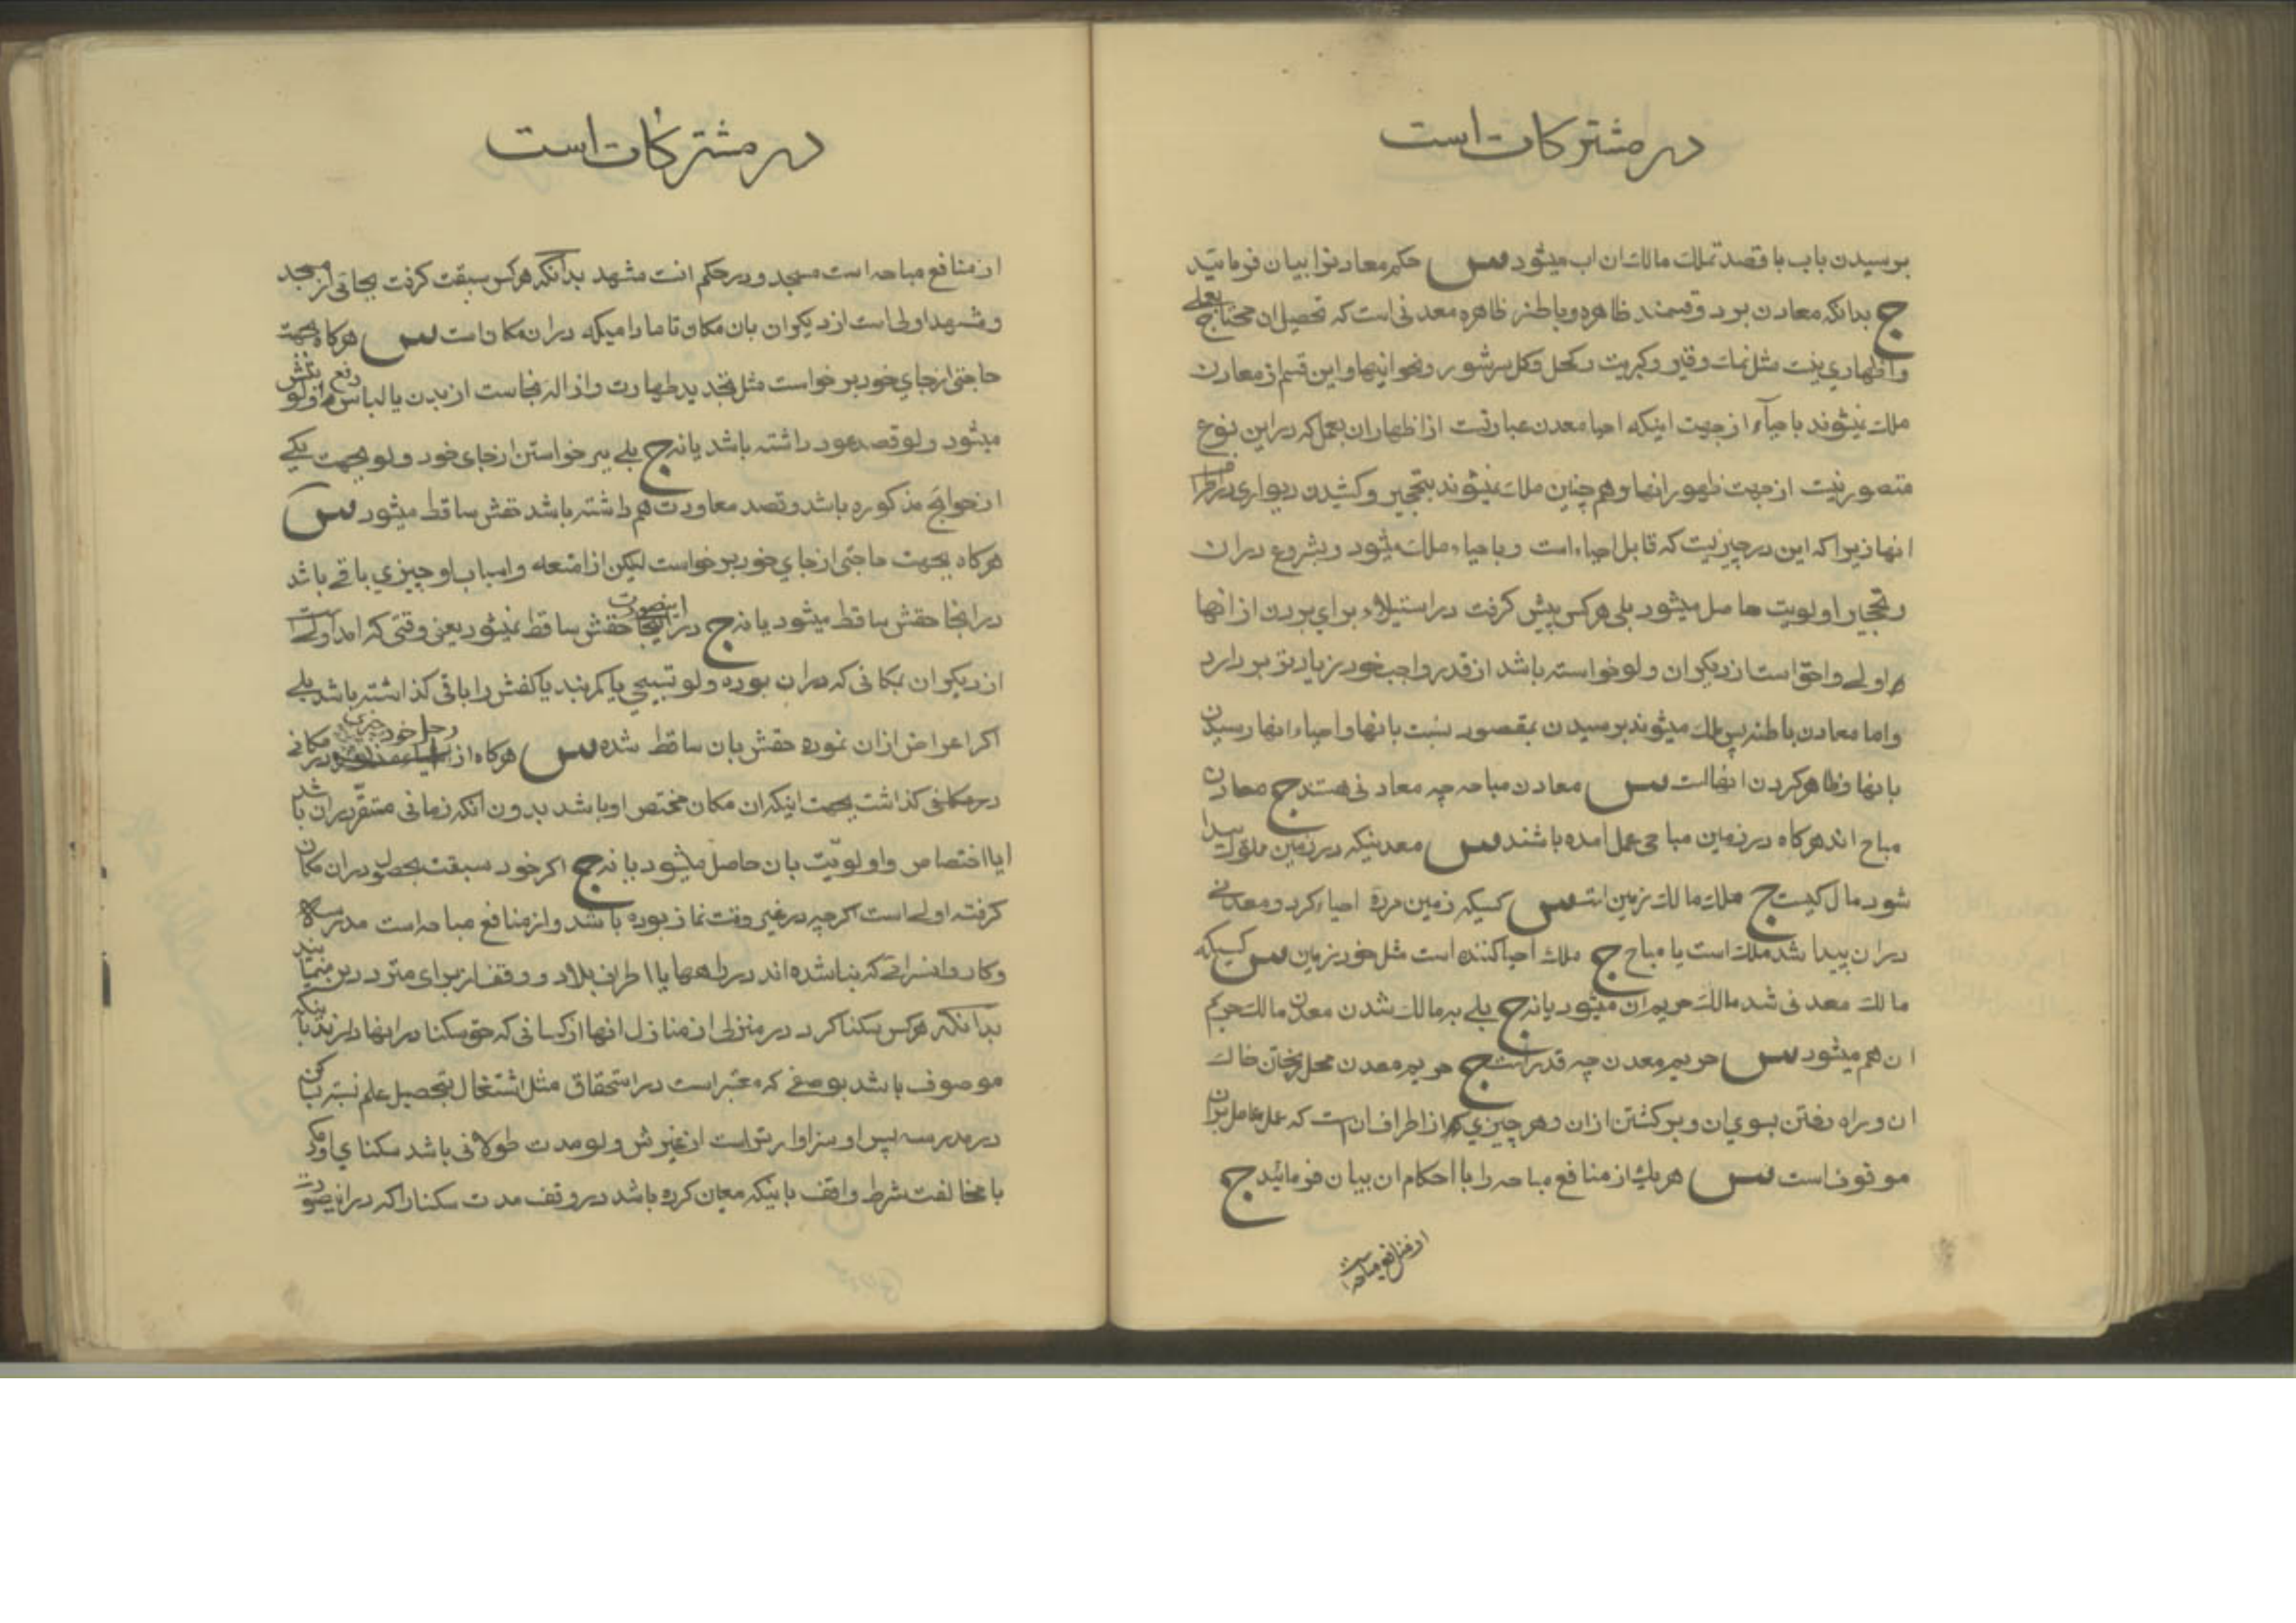 در مشترکات است
برسیدن باب با قصد تملک مالک ان اب میشود س حکم معادنرا بیان فرمائید
ج بدانکه معادن بر دو قسمند ظاهره و باطنه ظاهره معدنی است که تحصیل ان محتاج بعملی
و اظهاری نیست مثل نمک و قیر و کبریت و کحل و کل سرشور و نحو اینها و این قسم از معادن
ملک نمیشوند باحیاء از جهت اینکه احیا معدن عبارتست از اظهار ان بعمل که در این نوع
متصور نیست از جهت ظهور انها و همچنین ملک نمیشوند بتحجیر و کشیدن دیواری در اطراف
انها زیرا که این در چیزیست که قابل احیاء است و باحیاء ملک میشود و بشروع در ان
و تحجیر اولویت حاصل میشود بلی هر کس پیش گرفت در استیلاء برای بردن از انها
اولی و احق است از دیکران ولو خواسته باشد از قدر واجب خود زیادتر بردارد
و اما معادن باطنه پس ملک میشوند برسیدن بمقصود نسبت بانها و احیاء انها رسیدن
بانها و ظاهر کردن انهاست س معادن مباحه چه معادنی هستند ج معادن
مباح اند هرکاه در زمین مباحی عمل امده باشند س معدنیکه در زمین ملوک پیدا
شود مال کیست ج ملک مالک زمین است س کسیکه زمین مرده احیاء کرد و معدنی
در ان پیدا شد ملک است یا مباح ج ملک احیا کننده است مثل خود زمین س کسیکه
مالک معدنی شد مالک حریم ان میشود یا نه ج بلی به مالک شدن معدن مالک حریم
ان هم میشود س حریم معدن چه قدر است ج حریم معدن محل ریختن خاک
ان و راه رفتن بسوی ان و برکشتن از ان و هر چیزی از اطراف ان است که عمل عامل بران
موقوف است س هر یک از منافع مباحه را با احکام ان بیان فرمائید ج
از منافع مباحه است
در مشترکات است
از منافع مباحه است مسجد و در حکم انست مشهد بدانکه هر کس سبقت کرفت بجائی از مسجد
و مشهد اولی است از دیکران بان مکان تا مادامیکه در ان مکان است س هرکاه بجهت
حاجتی از جای خود برخواست مثل تجدید طهارت و ازاله نجاست از بدن یا لباس رفع اولویتش
میشود ولو قصد عود داشته باشد یا نه ج بلی ببرخواستن از جای خود ولو بجهت یکی
از حوایج مذکوره باشد و قصد معاودت هم داشته باشد حقش ساقط میشود س
هرکاه بجهت حاجتی از جای خود برخواست لیکن از امتعه و اسباب او چیزی باقی باشد
در انجا حقش ساقط میشود یا نه ج در اینصورت حقش ساقط نمیشود یعنی وقتی که امد اولی است
از دیکران بمکانی که در ان بوده ولو تسبیحی یا کمربند یا کفش را باقی کذاشته باشد بلی
اکر اعراض از ان نموده حقش بان ساقط شده س هرکاه از رحل خود چیزی مکانی
در مکانی کذاشت بجهت اینکه ان مکان مختص او باشد بدون انکه زمانی مستقر در ان باشد
ایا اختصاص و اولویت بان حاصل میشود یا نه ج اکر خود سبقت بحصول در ان مکان
کرفته اولی است اکر چه در غیر وقت نماز بوده باشد و از منافع مباحه است مدرسه
و کاروانسرائی که بنا شده اند در راهها یا اطراف بلاد و وقفند برای متردد
بدانکه هر کس سکنا کرد در منزلی از منازل انها از کسانی که حق سکنا در انها دارند باینکه
موصوف باشد بوصفی که معتبر است در استحقاق مثل اشتغال بتحصیل علم نسبت بساکن
در مدرسه پس او سزاوارتر است از غیرش ولو مدت طولانی باشد سکنای او مکر
با مخالفت شرط واقف باینکه معین کرده باشد در وقف مدت سکنا را که در اینصورت